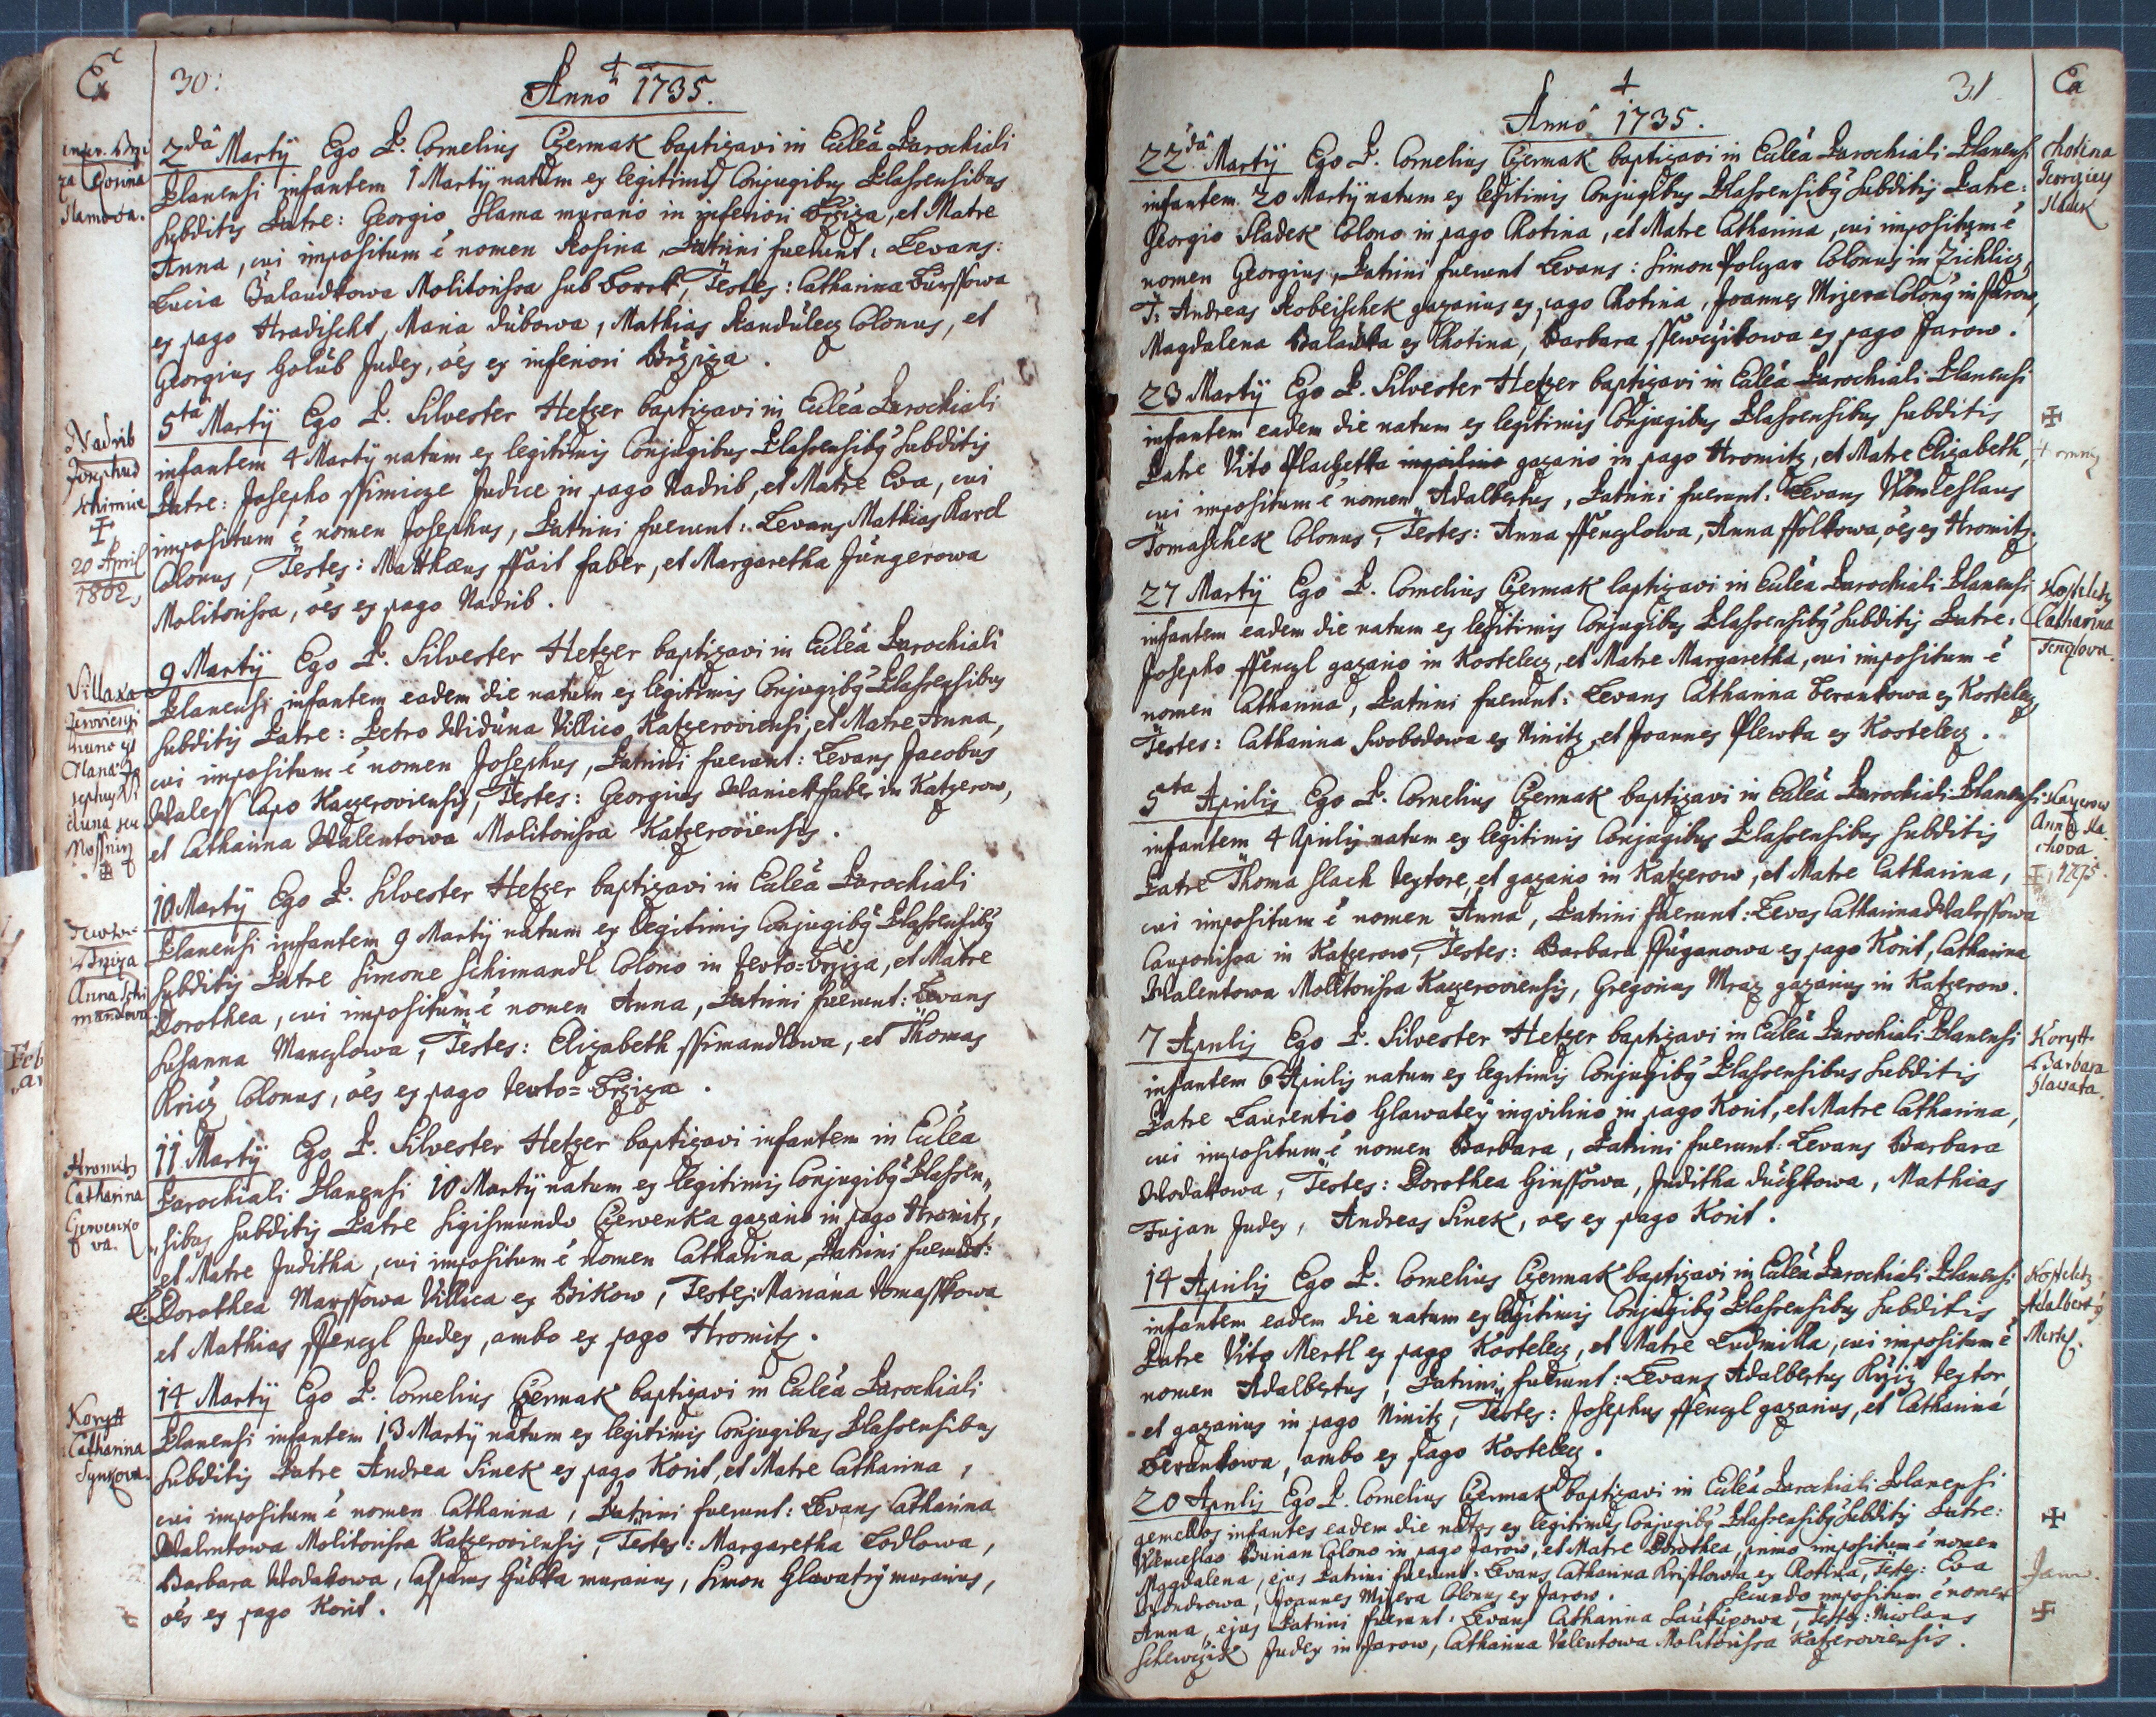 Ex
30:
Anno 1735.
infer. Brzi
za Rosina
Slamova.
2da Martÿ Ego P. Cornelius Czermak baptizavi in Ecclea Parochiali
Planensi infantem 1 Martÿ natum ex legitimis Conjugibus Plassensibus
subditis Patre: Georgio Slama murario in inferiori Brziza, et Matre
Anna, cui impositum ē nomen Rosina, Patrini fuerunt: Levans:
Lucia Balaudkowa Molitorissa sub Borek, Testes: Catharina Burssowa
ex pago Hradischt, Maria Dubowa, Mathias Randulecz Colonus, et
Georgius Holub Judex, oēs ex inferiori Brziza.
Nadrib
Josephus
Schimice
20 April
1802
5ta Martÿ Ego P. Silvester Hetzer baptizavi in Ecclea Parochiali
infantem 4 Martÿ natum ex legitimis Conjugibus Plassensibus subditis
Patre: Josepho Ssimicze Judice in pago Nadrib, et Matre Eva, cui
impositum ē nomen Josephus, Patrini fuerunt: Levans Mathias Karel
Colonus, Testes: Matthæus Ssait faber, et Margaretha Jungerowa
Molitorissa, oēs ex pago Nadrib.
Villa Ka
9 Martÿ Ego P. Silvester Hetzer baptizavi in Ecclea Parochiali
Planensi infantem eadem die natum ex legitimis Conjugibus Plassensibus
subditis Patre: Petro Widuna Villico Katzeroviensi, et Matre Anna,
cui impositum ē nomen Josephus, Patrini fuerunt: Levans Jacobus
Waless Capo Kaczeroviensis, Testes: Georgius Waniek faber in Katzerow,
et Catharina Walentowa Molitorissa Katzeroviensis.
Brziza
Anna Schi
mandova
10 Martÿ Ego P. Silvester Hetzer baptizavi in Ecclea Parochiali
Planensi infantem 9 Martÿ natum ex legitimis Conjugibus Plassensibus
subditis Patre Simone Schimandl Colono in Zevto=Brziza, et Matre
Dorothea, cui impositum ē nomen Anna, Patrini fuerunt: Levans
Susanna Manczlowa, Testes: Elizabeth Ssimandlowa, et Thomas
Kricz Colonus, oēs ex pago Zevto=Brziza.
Hromitz
Catharina
Czervenko
va.
11 Martÿ Ego P. Silvester Hetzer baptizavi infantem in Ecclea
Parochiali Planensi 10 Martÿ natum ex legitimis Conjugibus Plassen„
„sibus subditis Patre Sigismundo Czerwenka gazario in pago Hromitz,
et Matre Juditha, cui impositum ē nomen Catharina, Patrini fuerunt:
L: Dorothea Marssowa Villica ex Bikow, Testes: Mariana Tomasskowa
et Mathias Ssenczl Judex, ambo ex pago Hromitz.
Korytt
Catharina
Synkova.
14 Martÿ Ego P. Cornelius Czermak baptizavi in Ecclea Parochiali
Planensi infantem 13 Martÿ natum ex legitimis Conjugibus Plassensibus
subditis Patre Andrea Sinek ex pago Korit, et Matre Catharina,
cui impositum ē nomen Catharina, Patrini fuerunt: Levans Catharina
Walentowa Molitorissa Katzeroviensis, Testes: Margaretha Lodlowa,
Barbara Wodakowa, Casparus Hubka murarius, Simon Glawatry murarius,
oēs ex pago Korit.
31
Ex
Anno 1735.
Chotina
Georgius
Sladek
22da Martÿ Ego P. Cornelius Czermak baptizavi in Ecclea Parochiali Planensi
infantem 20 Martÿ natum ex legitimis Conjugibus Plassensibus subditis Patre:
Georgio Sladek Colono in pago Chotina, et Matre Catharina, cui impositum ē
nomen Georgius, Patrini fuerunt Levans: Simon Polczar Colonus in Zichlicz,
T: Andreas Kobeischek gazarius ex pago Chotina, Joannes Mizera Colonus in Jarow,
Magdalena Balaukka ex Chotina, Barbara Ssewczikowa ex pago Jarow.
23 Martÿ Ego P. Silvester Hetzer baptizavi in Ecclea Parochiali Planensi
infantem eadem die natum ex legitimis Conjugibus Plassensibus subditis
Patre Vito Plachetka inquilino gazario in pago Hromitz, et Matre Elizabeth,
cui impositum ē nomen Adalbertus, Patrini fuerunt: Levans Wenceslaus
Tomaschek Colonus, Testes: Anna Ssenczlowa, Anna Ssolkowa, oēs ex Hromitz.
Kosteletz
Catharina
Fenzlova.
27 Martÿ Ego P. Cornelius Czermak baptizavi in Ecclea Parochiali Planensi
infantem eadem die natum ex legitimis Conjugibus Plassensibus subditis Patre:
Josepho Ssenczl gazario in Kostelecz, et Matre Margaretha, cui impositum ē
nomen Catharina, Patrini fuerunt: Levans Catharina Berankowa ex Kostelecz
Testes: Catharina Swobodowa ex Ninitz, et Joannes Plewka ex Kostelecz.
Kaczerow
Anna Sla
chova
1795.
5ta Aprilis Ego P. Cornelius Czermak baptizavi in Ecclea Parochiali Planensi
infantem 4 Aprilis natum ex legitimis Conjugibus Plassensibus subditis
Patre Thoma Slach textore, et gazario in Katzerow, et Matre Catharina,
cui impositum ē nomen Anna, Patrini fuerunt: Levas Catharina Walessowa
Cauponissa in Katzerow, Testes: Barbara Pluganowa ex pago Korit, Catharina
Walentowa Molitorissa Kaczeroviensis, Gregorius Mraz gazarius in Katzerow.
Korytt
Barbara
Hlavata.
7 Aprilis Ego P. Silvester Hetzer baptizavi in Ecclea Parochiali Planensi
infantem 6 Aprilis natum ex legitimis Conjugibus Plassensibus subditis
Patre Laurentio Glawateÿ inquilino in pago Korit, et Matre Catharina,
cui impositum ē nomen Barbara, Patrini fuerunt: Levans Barbara
Wodakowa, Testes: Dorothea Ginssowa, Juditha Duchkowa, Mathias
Fujan Judex, Andreas Sinek, oēs ex pago Korit.
Kosteletz
Adalbertus
Mertl.
14 Aprilis Ego P. Cornelius Czermak baptizavi in Ecclea Parochiali Planensi
infantem eadem die natum ex legitimis Conjugibus Plassensibus subditis
Patre Vito Mertl ex pago Kostelecz, et Matre Ludmilla, cui impositum ē
nomen Adalbertus, Patrini fuerunt: Levans Adalbertus Kržiz textor,
et gazarius in pago Ninitz, Testes: Josephus Ssenczl gazarius, et Catharina
Berankowa, ambo ex pago Kostelecz.
20 Aprilis Ego P. Cornelius Czermak baptizavi in Ecclea Parochiali Planensi
gemellos infantes eadem die natos ex legitimis Conjugibus Plassensibus subditis Patre:
Wenceslao Burian Colono in pago Jarow, et Matre Dorothea, primo impositum ē nomen
Magdalena, ejus Patrini fuerunt: Levans Catharina Kristlowa ex Chotina, Testes: Eva
Wondrowa, Joannes Misera Colonus ex Jarow. Secundo impositum ē nomen
Anna, ejus Patrini fuerunt: Levans Catharina Saukupowa, Testes: Nicolaus
Schewczik Judex in Jarow, Catharina Valentowa Molitorissa Katzeroviensis.